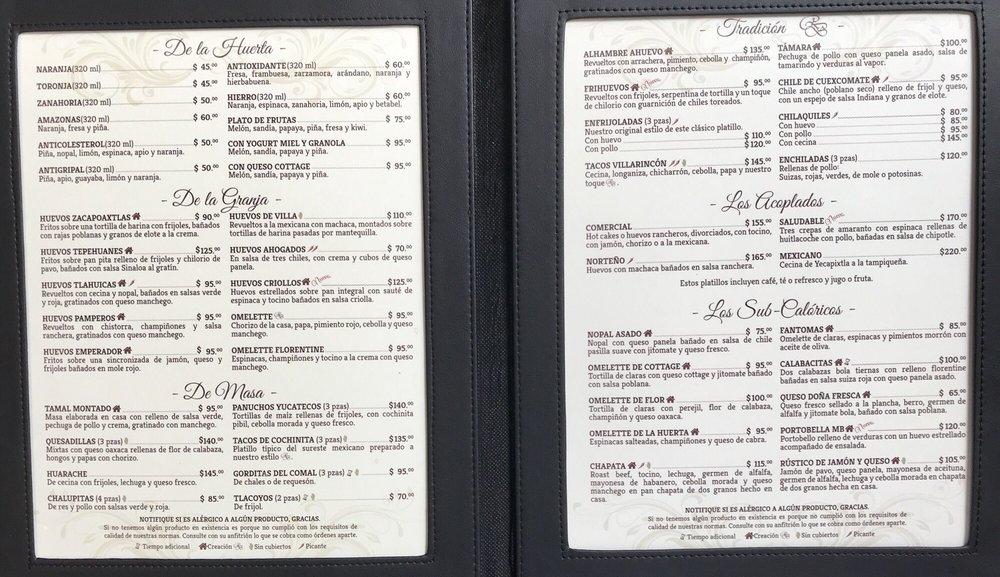 - De la Huerta -
NARANJA(320 ml) $ 45.00
TORONJA(320 ml) $ 45.00
ZANAHORIA(320 ml) $ 50.00
AMAZONAS(320 ml) $ 60.00
Naranja, fresa y piña.
ANTICOLESTEROL(320 ml) $ 50.00
Piña, nopal, limón, espinaca, apio y naranja.
ANTIGRIPAL(320 ml) $ 50.00
Piña, apio, guayaba, limón y naranja.
ANTIOXIDANTE(320 ml) $ 60.00
Fresa, frambuesa, zarzamora, arándano, naranja y
hierbabuena.
HIERRO(320 ml) $ 60.00
Naranja, espinaca, zanahoria, limón, apio y betabel.
PLATO DE FRUTAS $ 75.00
Melón, sandía, papaya, piña, fresa y kiwi.
CON YOGURT MIEL Y GRANOLA $ 95.00
Melón, sandía, papaya y piña.
CON QUESO COTTAGE $ 95.00
Melón, sandía, papaya y piña.
- De la Granja -
HUEVOS ZACAPOAXTLAS $ 90.00
Fritos sobre una tortilla de harina con frijoles, bañados
con rajas poblanas y granos de elote a la crema.
HUEVOS TEPEHUANES $125.00
Fritos sobre pan pita relleno de frijoles y chilorio de
pavo, bañados con salsa Sinaloa al gratín.
HUEVOS TLAHUICAS $ 95.00
Revueltos con cecina y nopal, bañados en salsas verde
y roja, gratinados con queso manchego.
HUEVOS PAMPEROS $ 95.00
Revueltos con chistorra, champiñones y salsa
ranchera, gratinados con queso manchego.
HUEVOS EMPERADOR $ 95.00
Fritos sobre una sincronizada de jamón, queso y
frijoles bañados en mole rojo.
HUEVOS DE VILLA $110.00
Revueltos a la mexicana con machaca, montados sobre
tortillas de harina pasadas por mantequilla.
HUEVOS AHOGADOS $ 70.00
En salsa de tres chiles, con crema y cubos de queso
panela.
HUEVOS CRIOLLOS Nuevo $125.00
Huevos estrellados sobre pan integral con sauté de
espinaca y tocino bañados en salsa criolla.
OMELETTE $ 95.00
Chorizo de la casa, papa, pimiento rojo, cebolla y queso
manchego.
OMELETTE FLORENTINE $ 95.00
Espinacas, champiñones y tocino a la crema con queso
manchego.
- De Masa -
TAMAL MONTADO $ 95.00
Masa elaborada en casa con relleno de salsa verde,
pechuga de pollo y crema, gratinado con manchego.
QUESADILLAS (3 pzas) $140.00
Mixtas con queso oaxaca rellenas de flor de calabaza,
hongos y papas con chorizo.
HUARACHE $145.00
De cecina con frijoles, lechuga y queso fresco.
CHALUPITAS (4 pzas) $ 85.00
De res y pollo con salsas verde y roja.
PANUCHOS YUCATECOS (3 pzas) $140.00
Tortillas de maíz rellenas de frijoles, con cochinita
pibil, cebolla morada y queso fresco.
TACOS DE COCHINITA (3 pzas) $135.00
Platillo típico del sureste mexicano preparado a
nuestro estilo.
GORDITAS DEL COMAL (3 pzas) $ 95.00
De chales o de requesón.
TLACOYOS (2 pzas) $ 70.00
De frijol.
NOTIFIQUE SI ES ALÉRGICO A ALGÚN PRODUCTO, GRACIAS.
Si no tenemos algún producto en existencia es porque no cumplió con los requisitos de
calidad de nuestras normas. Consulte con su anfitrión lo que se cobra como órdenes aparte.
Tiempo adicional Creación Sin cubiertos Picante
- Tradición
ALHAMBRE AHUEVO $ 135.00
Revueltos con arrachera, pimiento, cebolla y champiñón,
gratinados con queso manchego.
FRIHUEVOS Nuevo $ 95.00
Revueltos con frijoles, serpentina de tortilla y un toque
de chilorio con guarnición de chiles toreados.
ENFRIJOLADAS (3 pzas)
Nuestro original estilo de este clásico platillo.
Con huevo $ 110.00
Con pollo $ 120.00
TACOS VILLARINCÓN $ 145.00
Cecina, longaniza, chicharrón, cebolla, papa y nuestro
toque.
TÁMARA $100.00
Pechuga de pollo con queso panela asado, salsa de
tamarindo y verduras al vapor.
CHILE DE CUEXCOMATE $ 95.00
Chile ancho (poblano seco) relleno de frijol y queso,
con un espejo de salsa Indiana y granos de elote.
CHILAQUILES $ 80.00
Con huevo $ 85.00
Con pollo $ 95.00
Con cecina $145.00
ENCHILADAS (3 pzas) $120.00
Rellenas de pollo:
Suizas, rojas, verdes, de mole o potosinas.
- Los Acoplados -
COMERCIAL $ 155.00
Hot cakes o huevos rancheros, divorciados, con tocino,
con jamón, chorizo o a la mexicana.
NORTEÑO $ 165.00
Huevos con machaca bañados en salsa ranchera.
SALUDABLE Nuevo $ 170.00
Tres crepas de amaranto con espinaca rellenas de
huitlacoche con pollo, bañadas en salsa de chipotle.
MEXICANO $220.00
Cecina de Yecapixtla a la tampiqueña.
Estos platillos incluyen café, té o refresco y jugo o fruta.
- Los Sub-Calóricos -
NOPAL ASADO $ 75.00
Nopal con queso panela bañado en salsa de chile
pasilla suave con jitomate y queso fresco.
OMELETTE DE COTTAGE $ 95.00
Tortilla de claras con queso cottage y jitomate bañado
con salsa poblana.
OMELETTE DE FLOR $100.00
Tortilla de claras con perejil, flor de calabaza,
champiñón y queso oaxaca.
OMELETTE DE LA HUERTA $ 95.00
Espinacas salteadas, champiñones y queso de cabra.
CHAPATA $ 115.00
Roast beef, tocino, lechuga, germen de alfalfa,
mayonesa de habanero, cebolla morada y queso
manchego en pan chapata de dos granos hecho en
casa.
FANTOMAS $ 85.00
Omelette de claras, espinacas y pimientos morrón con
aceite de oliva.
CALABACITAS $100.00
Dos calabazas bola tiernas con relleno florentine
bañadas en salsa suiza roja con queso panela asado.
QUESO DOÑA FRESCA $ 65.00
Queso fresco sellado a la plancha, berro, germen de
alfalfa y jitomate bola, bañado con salsa poblana.
PORTOBELLA MB Nuevo $120.00
Portobello relleno de verduras con un huevo estrellado
acompañado de ensalada.
RÚSTICO DE JAMÓN Y QUESO $ 105.00
Jamón de pavo, queso panela, mayonesa de aceituna,
germen de alfalfa, lechuga y cebolla morada en chapata
de dos granos hecha en casa.
NOTIFIQUE SI ES ALÉRGICO A ALGÚN PRODUCTO, GRACIAS.
Si no tenemos algún producto en existencia es porque no cumplió con los requisitos de
calidad de nuestras normas. Consulte con su anfitrión lo que se cobra como órdenes aparte.
Tiempo adicional Creación Sin cubiertos Picante